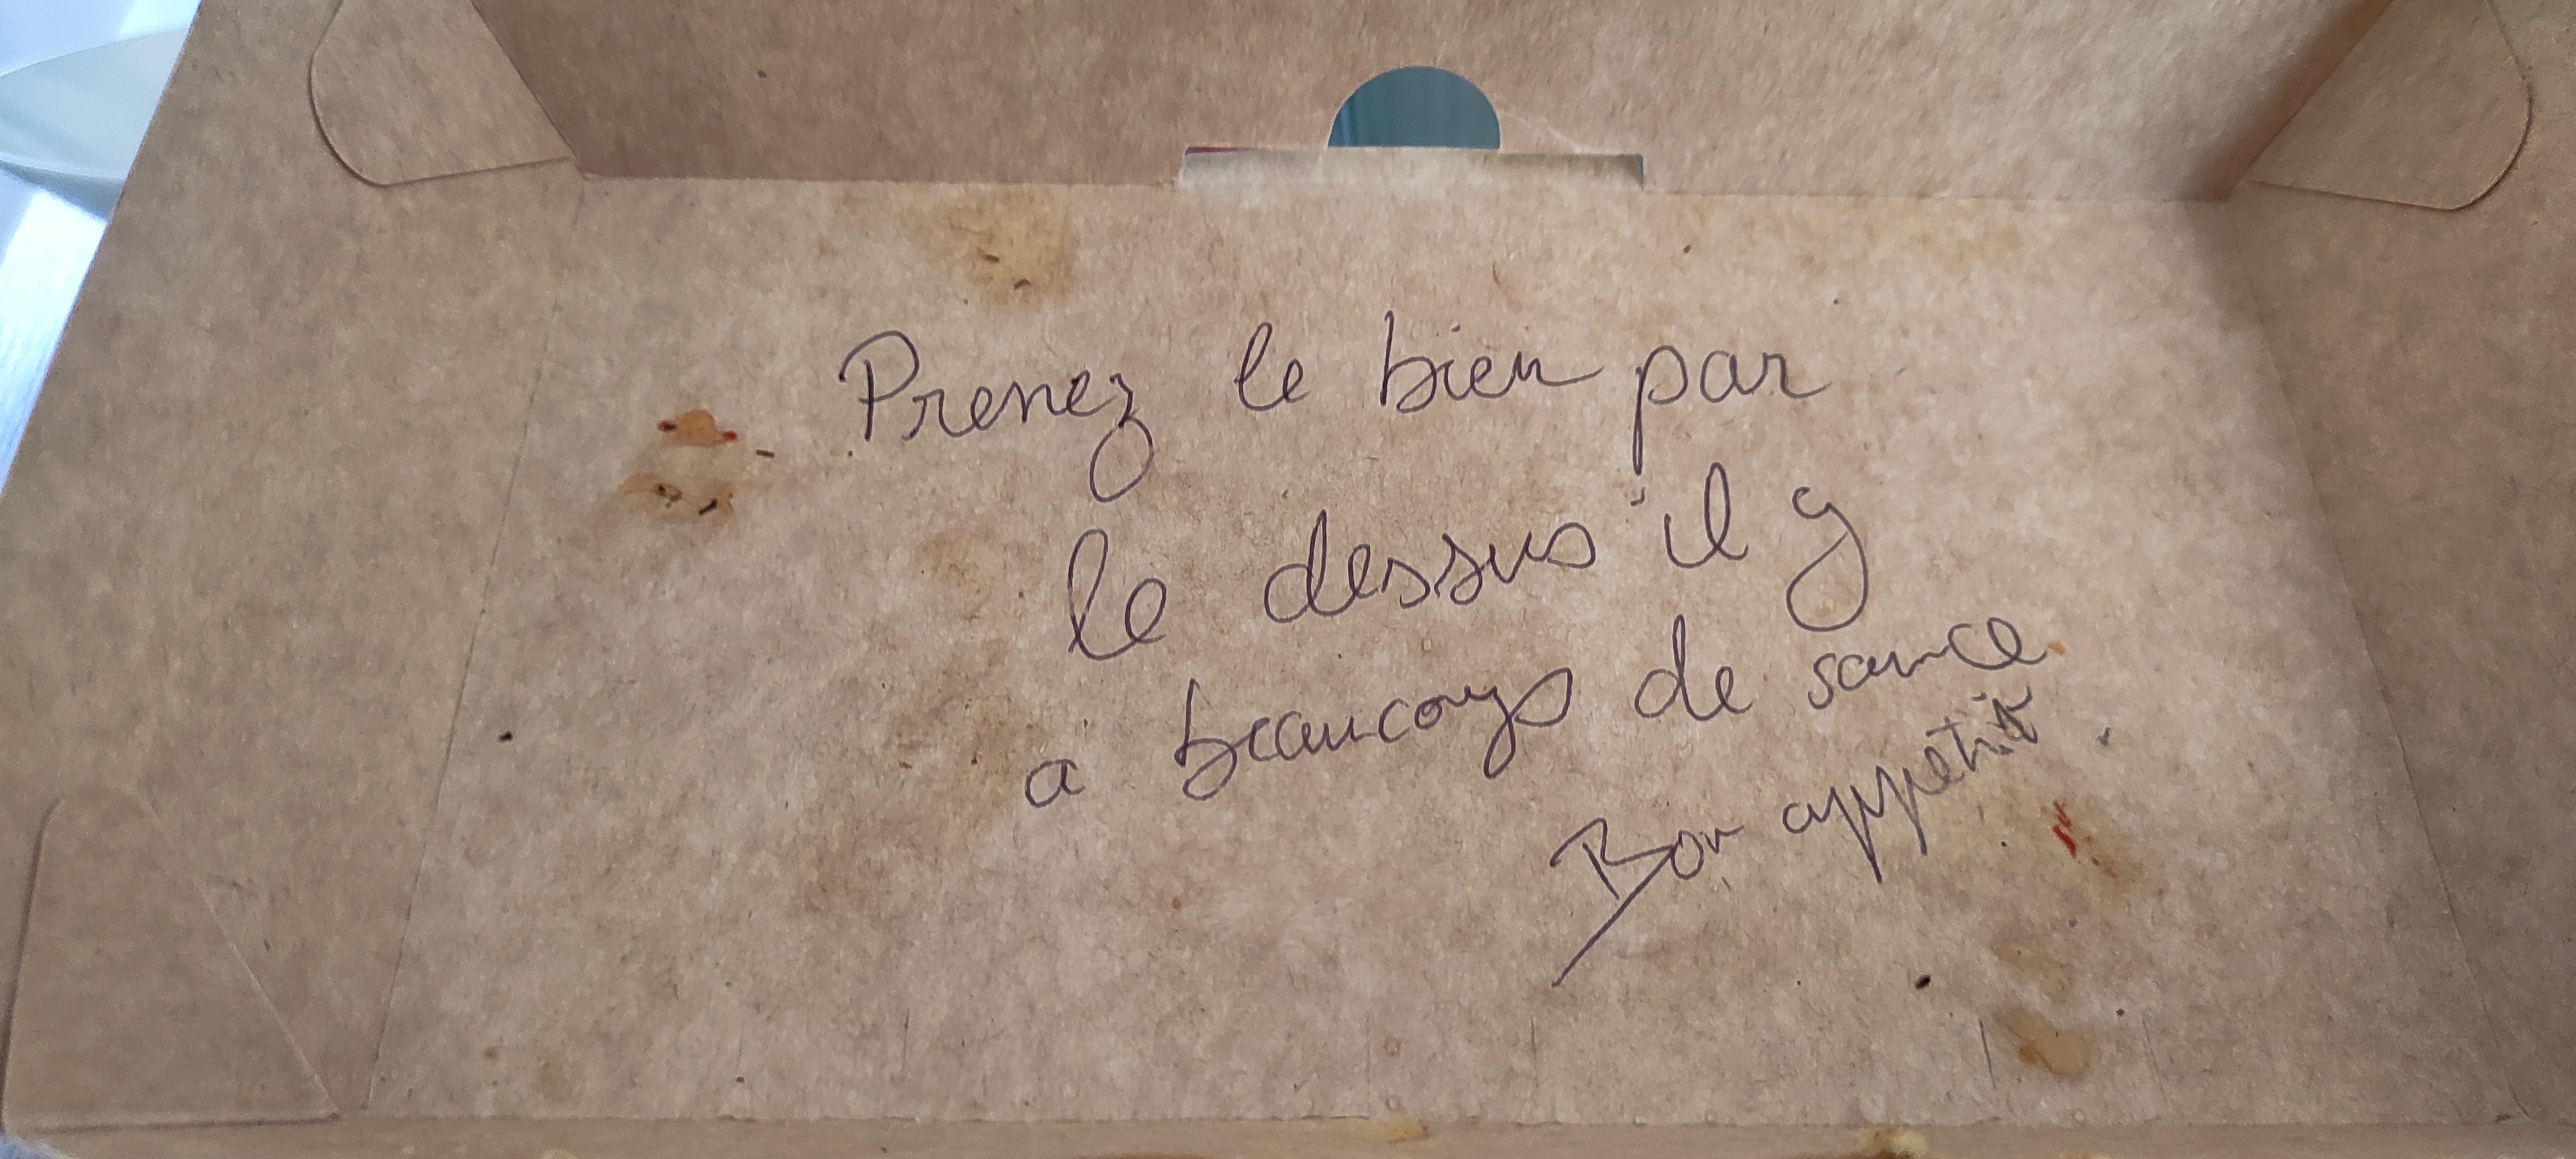 Prenez le bien par
le dessus il y
a beaucoup de sauce
Bon appétit.